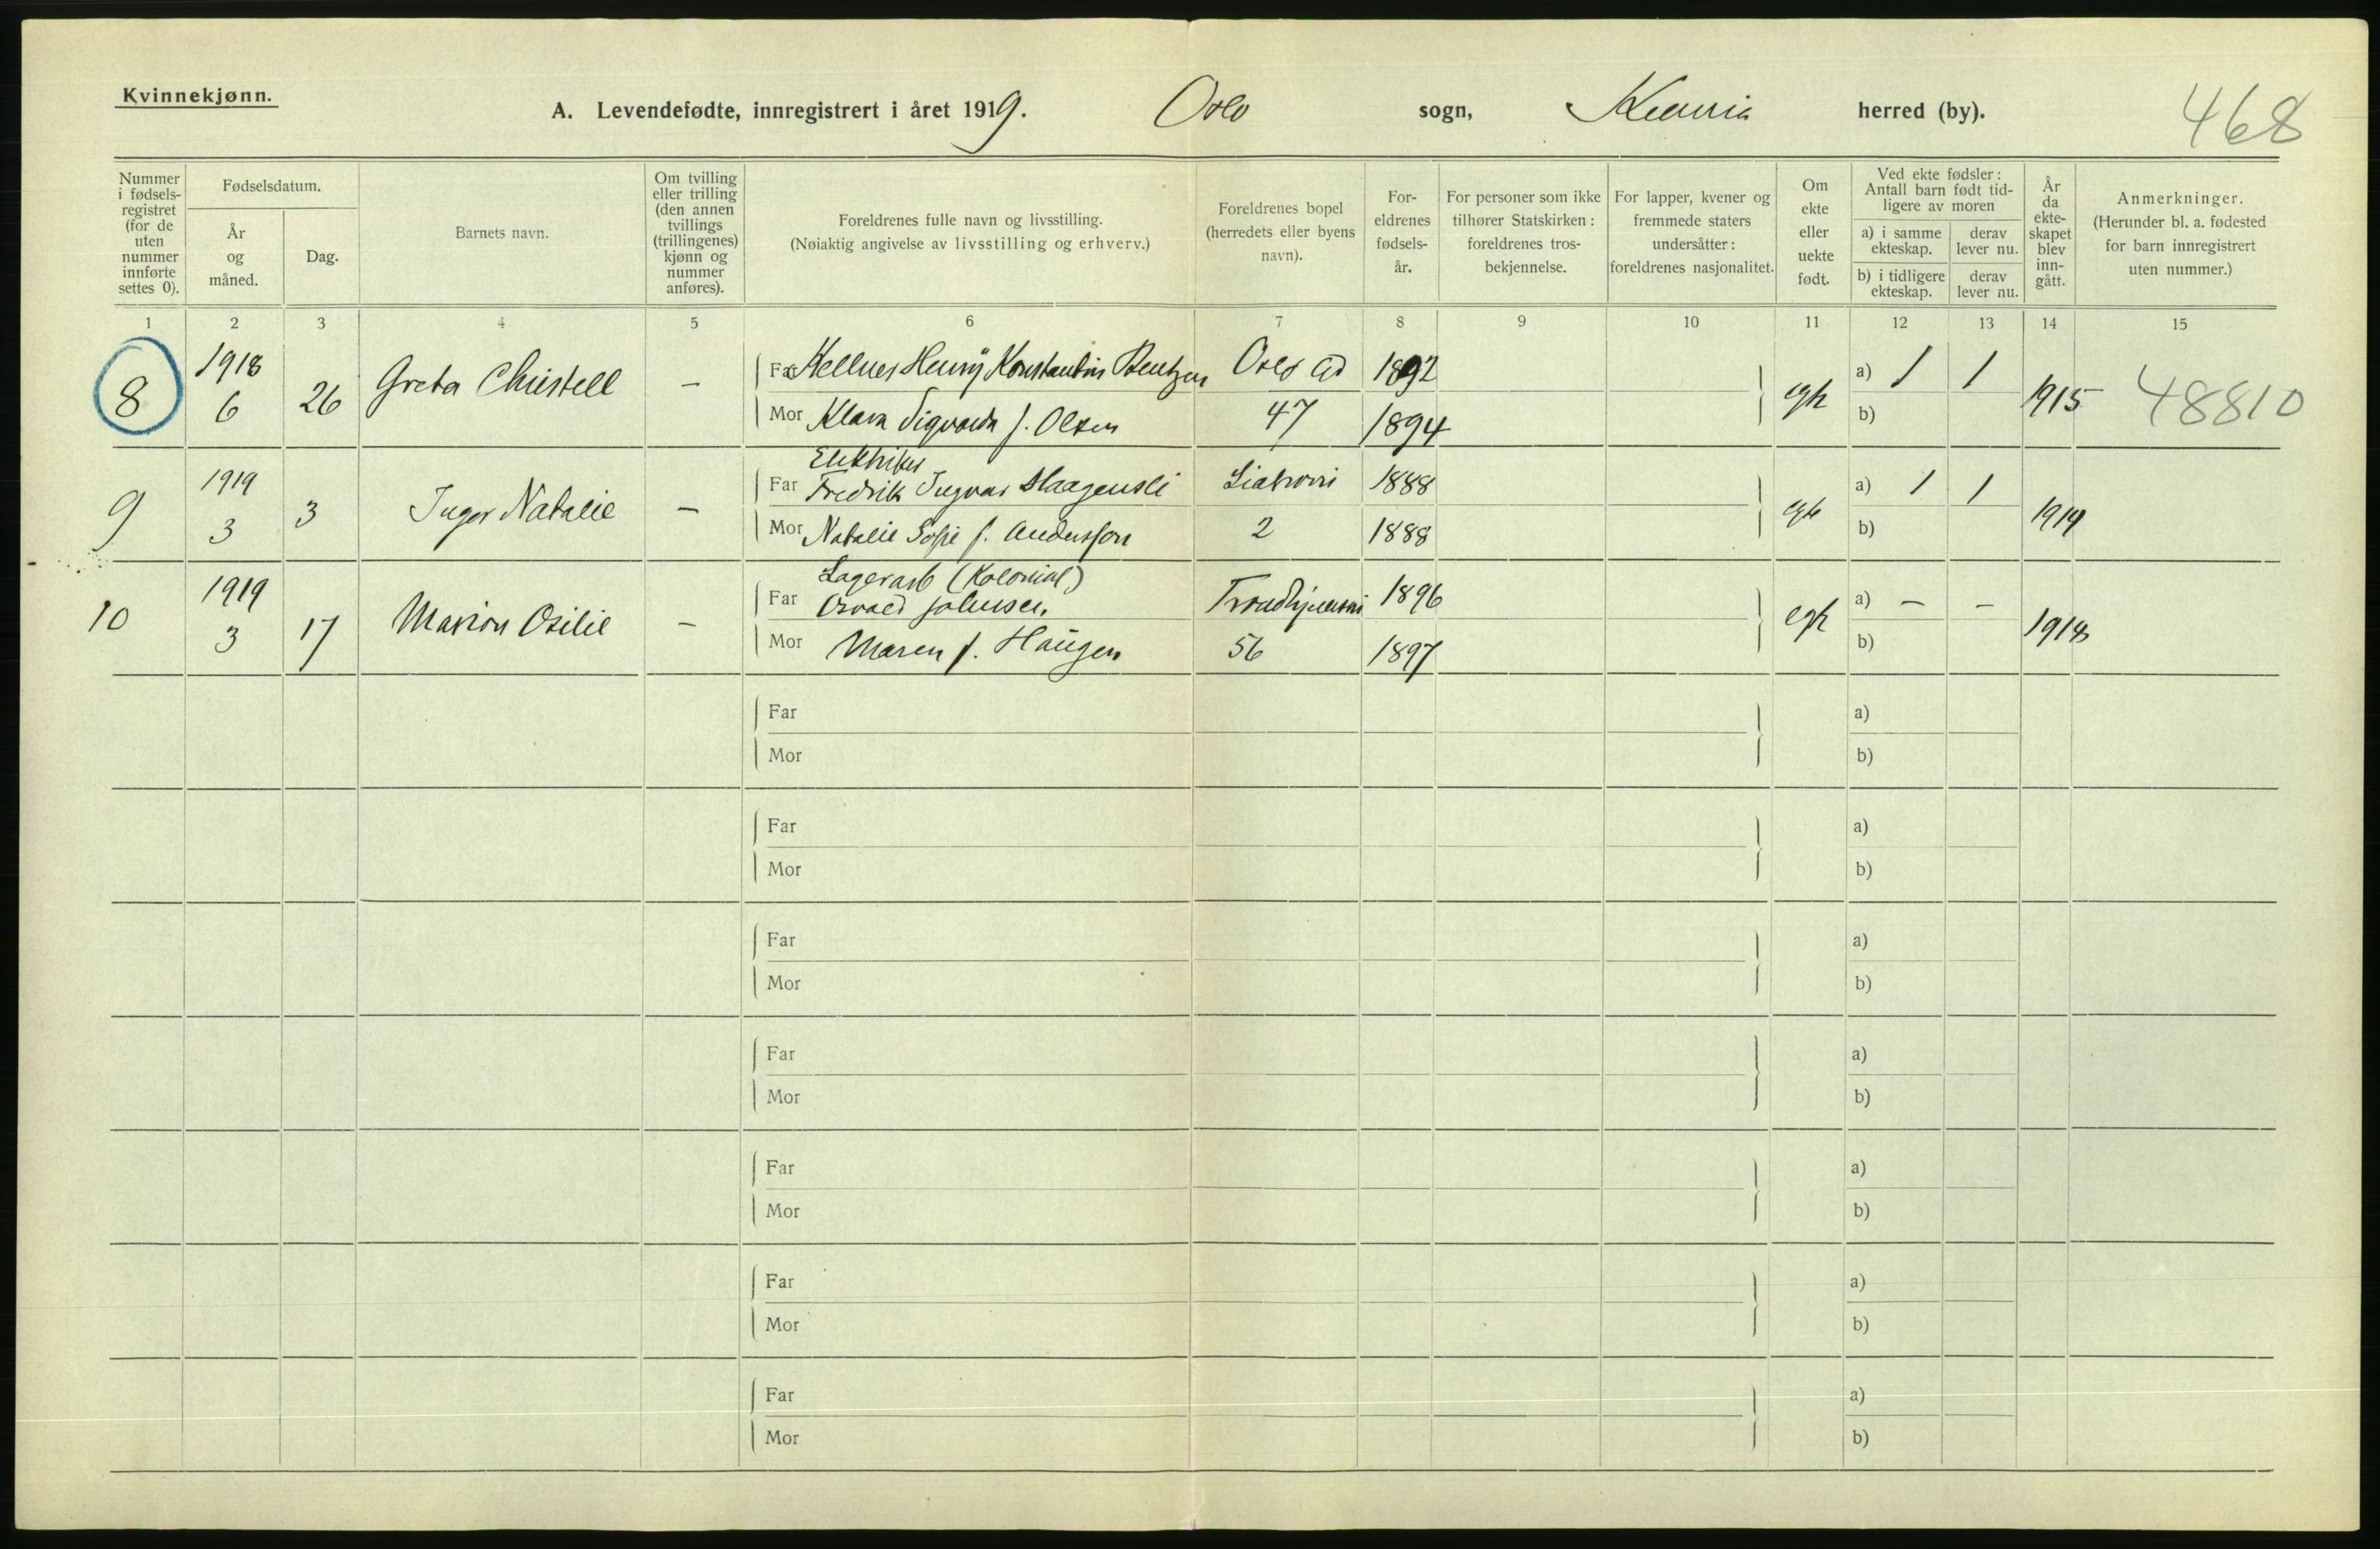 Kvinnekjønn.
A. Levendefødte, innregistrert i året 1919. Oslo sogn, Krania herred (by).
468
Nummer i fødsels-registret (for de uten nummer innførte settes 0).
Fødselsdatum.
År og måned.
Dag.
Barnets navn.
Om tvilling eller trilling (den annen tvillings (trillingenes) kjønn og nummer anføres).
Foreldrenes fulle navn og livsstilling.
(Nøiaktig angivelse av livsstilling og erhverv.)
Foreldrenes bopel (herredets eller byens navn).
For-eldrenes fødsels-år.
For personer som ikke tilhører Statskirken: foreldrenes tros-bekjennelse.
For lapper, kvener og fremmede staters undersåtter: foreldrenes nasjonalitet.
Om ekte eller uekte født.
Ved ekte fødsler: Antall barn født tid-ligere av moren
a) i samme ekteskap.
derav lever nu.
b) i tidligere ekteskap.
derav lever nu.
År da ekte-skapet blev inn-gått.
Anmerkninger.
(Herunder bl. a. fødested for barn innregistrert uten nummer.)
1 2 3 4 5 6 7 8 9 10 11 12 13 14 15
8 1918 6 26 Greta Christell –
Far Kellner Henry Konstantin Bentzen Oslo Gd 1892
Mor Klara Sigvarda f. Olsen 47 1894
egte a) 1 1 b) 1915 48810
9 1919 3 3 Inger Natalie –
Elektriker
Far Fredrik Ingvar Haagensli Liabrovn 1888
Mor Natalie Sofie f. Andersson 2 1888
egte a) 1 1 b) 1914
10 1919 3 17 Marion Osilie –
Lagerarb (Kolonial)
Far Osvald Johnsen Trondhjemsvn 1896
Mor Maren f. Haugen 56 1897
egte a) – – b) 1918
Far a)
Mor b)
Far a)
Mor b)
Far a)
Mor b)
Far a)
Mor b)
Far a)
Mor b)
Far a)
Mor b)
Far a)
Mor b)